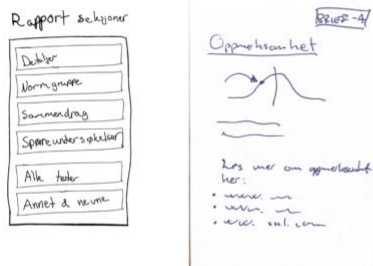 Rapport seksjoner
Detaljer
Normgruppe
Sammendrag
Spørreundersøkelser
Alle tester
Annet å nevne
BRIEF-4
Oppmerksomhet
Les mer om oppmerksomhet
her:
• www.
• www.
• www. .com